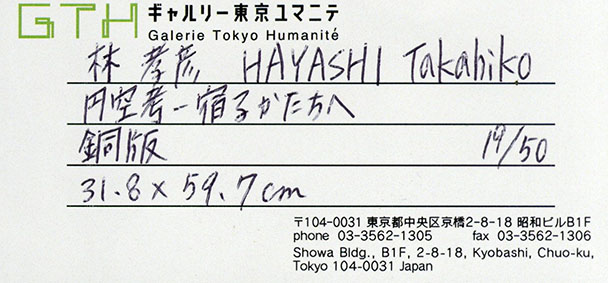 GTH ギャルリー東京ユマニテ
Galerie Tokyo Humanité
林 孝彦 HAYASHI Takahiko
円空考－宿るかたちへ
銅版 19/50
31.8 × 59.7cm
〒104-0031 東京都中央区京橋2-8-18 昭和ビルB1F
phone 03-3562-1305 fax 03-3562-1306
Showa Bldg., B1F, 2-8-18, Kyobashi, Chuo-ku,
Tokyo 104-0031 Japan